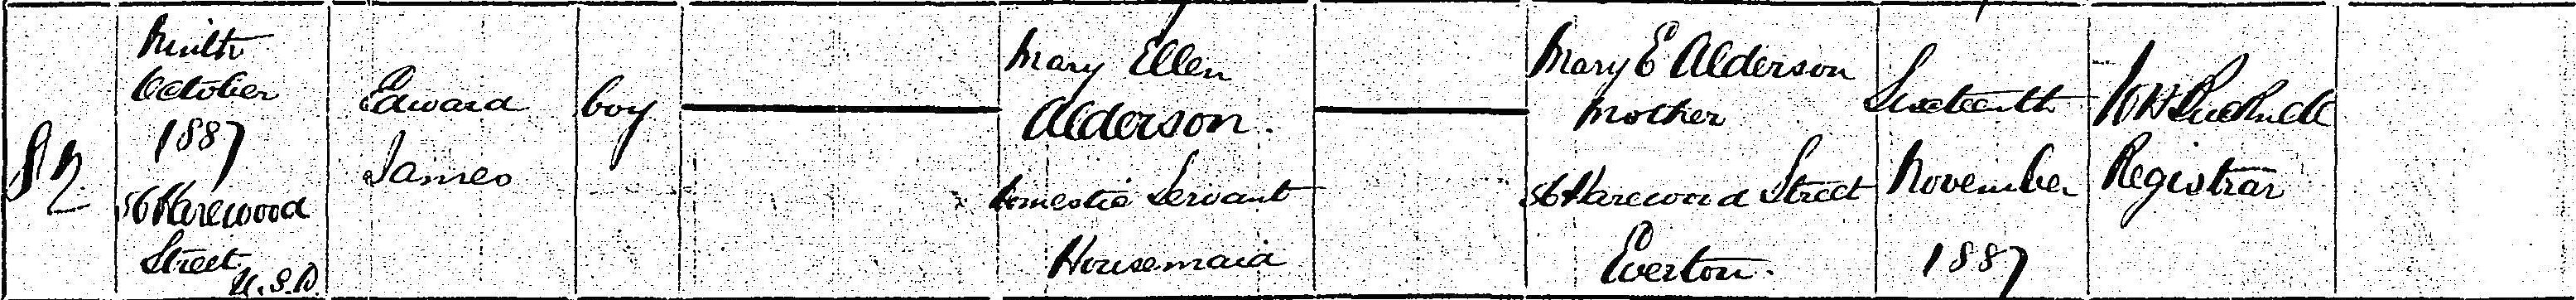 82
Ninth
October
1887
56 Harewood
Street
U.S.D.
Edward
James
boy
Mary Ellen
Alderson.
Domestic Servant
Housemaid
Mary E Alderson
Mother
56 Harewood Street
Everton.
Sixteenth
November
1887
Registrar